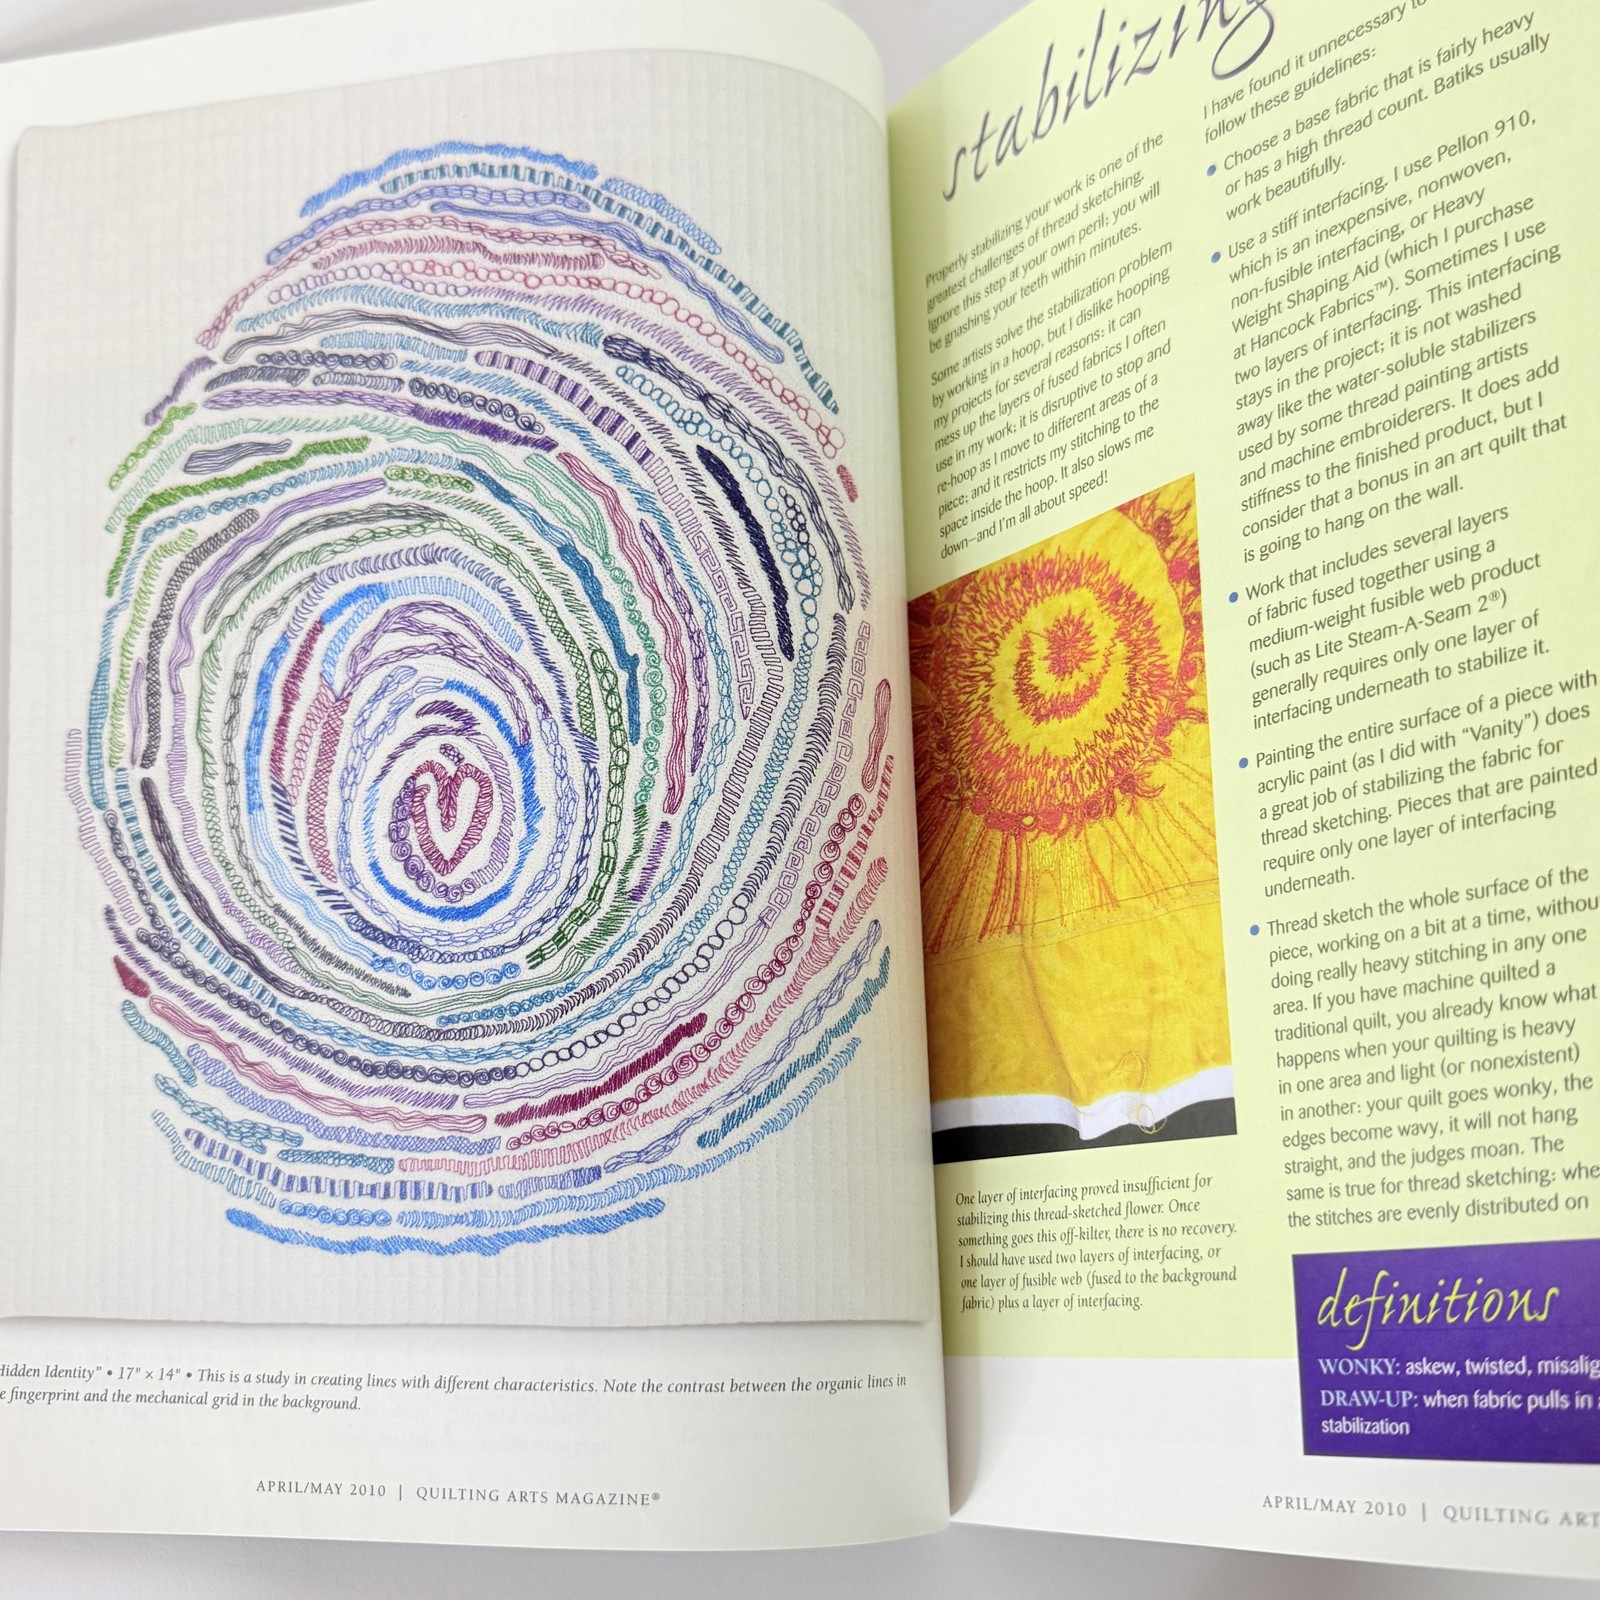 Hidden Identity” • 17" × 14" • This is a study in creating lines with different characteristics. Note the contrast between the organic lines in
fingerprint and the mechanical grid in the background.
APRIL/MAY 2010 | QUILTING ARTS MAGAZINE®
stabilizing
Properly stabilizing your work is one of the
greatest challenges of thread sketching.
Ignore this step at your own peril; you will
be gnashing your teeth within minutes.
Some artists solve the stabilization problem
by working in a hoop, but I dislike hooping
my projects for several reasons: it can
mess up the layers of fused fabrics I often
use in my work; it is disruptive to stop and
re-hoop as I move to different areas of a
piece; and it restricts my stitching to the
space inside the hoop. It also slows me
down—and I'm all about speed!
One layer of interfacing proved insufficient for
stabilizing this thread-sketched flower. Once
something goes this off-kilter, there is no recovery.
I should have used two layers of interfacing, or
one layer of fusible web (fused to the background
fabric) plus a layer of interfacing.
I have found it unnecessary to
follow these guidelines:
• Choose a base fabric that is fairly heavy
or has a high thread count. Batiks usually
work beautifully.
• Use a stiff interfacing. I use Pellon 910,
which is an inexpensive, nonwoven,
non-fusible interfacing, or Heavy
Weight Shaping Aid (which I purchase
at Hancock Fabrics™). Sometimes I use
two layers of interfacing. This interfacing
stays in the project; it is not washed
away like the water-soluble stabilizers
used by some thread painting artists
and machine embroiderers. It does add
stiffness to the finished product, but I
consider that a bonus in an art quilt that
is going to hang on the wall.
• Work that includes several layers
of fabric fused together using a
medium-weight fusible web product
(such as Lite Steam-A-Seam 2®)
generally requires only one layer of
interfacing underneath to stabilize it.
• Painting the entire surface of a piece with
acrylic paint (as I did with “Vanity”) does
a great job of stabilizing the fabric for
thread sketching. Pieces that are painted
require only one layer of interfacing
underneath.
• Thread sketch the whole surface of the
piece, working on a bit at a time, withou
doing really heavy stitching in any one
area. If you have machine quilted a
traditional quilt, you already know what
happens when your quilting is heavy
in one area and light (or nonexistent)
in another: your quilt goes wonky, the
edges become wavy, it will not hang
straight, and the judges moan. The
same is true for thread sketching: whe
the stitches are evenly distributed on
definitions
WONKY: askew, twisted, misalig
DRAW-UP: when fabric pulls in
stabilization
APRIL/MAY 2010 | QUILTING ART